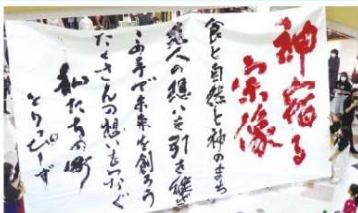 神宿る
宗像
食と自然と神のまち
先人の想いを引き継ぎ
この手で未来を創ろう
たくさんの想いをつなぐ
私たちの街
とりっぴーず